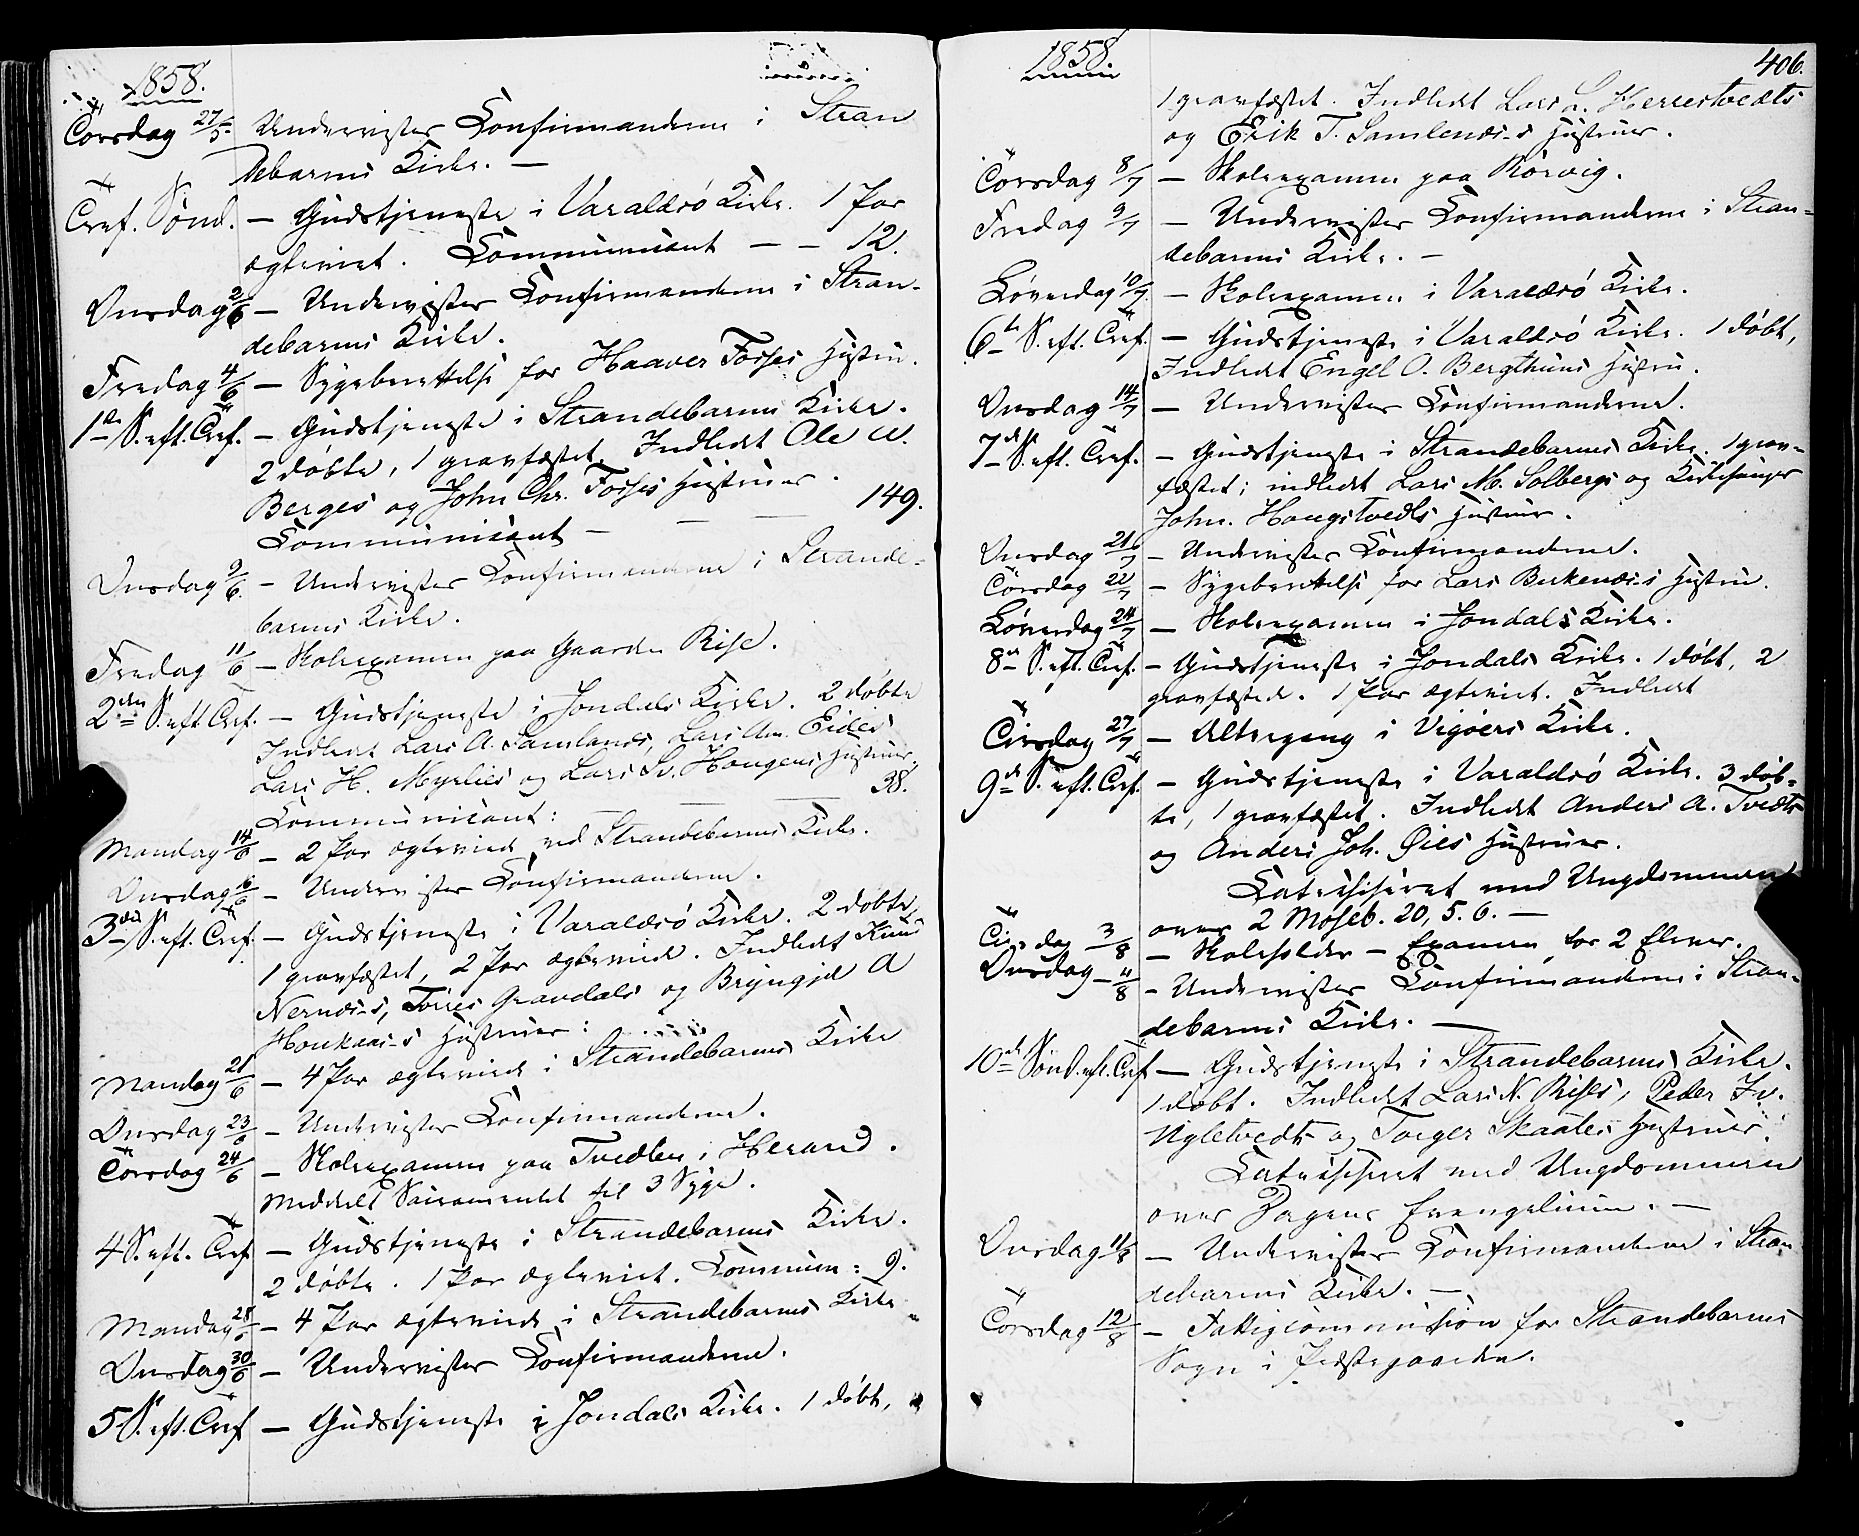 1858.
Torsdag 27/5. Underviste Confirmanderne i Stran
debarms Kirke. —
Tref. Sønd. — Gudstjeneste i Varaldsö Kirke. 1 Par
ægteviet. Communicant — — 12.
Onsdag 2/6 — Underviste Confirmanderne i Stran-
debarms Kirke.
Fredag 4/6 — Sygeberettelse for Haaver Fosses Hustru.
1ste S. eft. Tref. — Gudstjeneste i Strandebarms Kirke.
2 döbte, 1 gravfæstet. Indledt Ole W.
Berges og John Chr. Fosses Hustruer.
Communicant — — — 149.
Onsdag 9/6 — Underviste Confirmanderne i Strande-
barms Kirke.
Fredag 11/6 — Skolexamen paa Gaarden Rise.
2den S. eft Tref. — Gudstjeneste i Jondals Kirke. 2 döbte
Indledt Lars A. Samlands, Lars Am. Eides
Lars H. Myrlies og Lars Sv. Haugens Hustruer.
Communicant: — — 38.
Mandag 14/6 — 2 Par ægteviede ved Strandebarms Kirke.
Onsdag 16/6 — Underviste Confirmanderne.
3die S. eft. Tref. — Gudstjeneste i Varaldsö Kirke. 2 döbte,
1 gravfæstet, 2 Par ægteviede. Indledt Knud
Nernæs-s, Torres Gravdals og Brÿngjel A
Houkaas-s Hustruer:
Mandag 21/6 — 4 Par ægteviede i Strandebarms Kirke
Onsdag 23/6 — Underviste Confirmanderne.
Torsdag 24/6 — Skolexamen paa Tvedten i Herand.
Meddelt Sacramentet til 3 Syge.
4 S. eft. Tref — Gudstjeneste i Strandebarms Kirke.
2 döbte. 1 Par ægteviet. Commun: 9.
Mandag 28/6 — 4 Par ægteviede i Strandebarms Kirke
Onsdag 30/6 — Underviste Confirmanderne.
5 S. eft. Tref — Gudstjeneste i Jondals Kirke. 1 döbt,
1858. 406.
1 gravfæstet. Indledt Lars L. Herrestvedts
og Erik T. Samlenæs-s Hustruer.
Torsdag 8/7 — Skolexamen paa Rörvig.
Fredag 9/7 — Underviste Confirmanderne i Stran-
debarms Kirke. —
Løverdag 10/7. — Skolexamen i Varaldsö Kirke.
6te S. eft. Tref. — Gudstjeneste i Varaldsö Kirke. 1 döbt,
Indledt Engel O. Bergthuns Hustru.
Onsdag 14/7 — Underviste Confirmanderne.
7de S. eft. Tref. — Gudstjeneste i Strandebarms Kirke. 1 grav-
fæstet; indledt Lars M. Solbergs og Kirkesanger
John. Haugstvedts Hustruer.
Onsdag 21/7 — Underviste Confirmanderne.
Torsdag 22/7 — Sygeberettelse for Lars Berkenæs-s Hustru.
Løverdag 24/7 — Skolexamen i Jondals Kirke.
8de S. eft. Tref. — Gudstjeneste i Jondals Kirke. 1 döbt, 2
gravfæstede. 1 Par ægteviet. Indledt
Tirsdag 27/7 — Altergang i Vigöers Kirke.
9de S. eft. Tref. — Gudstjeneste i Varaldsö Kirke. 3 döb-
te, 1 gravfæstet. Indledt Anders A. Tvedts
og Anders Joh. Øies Hustruer.
Catechiseret med Ungdommen
over 2 Moseb. 20, 5. 6. —
Tirsdag 3/8 — Skoleholder - Examen for 2 Elever.
Onsdag — 4/8 — Underviste Confirmanderne i Stran-
debarms Kirke. —
10de Sönd. eft. Tref — Gudstjeneste i Strandebarms Kirke.
1 döbt. Indledt Lars N. Rises, Peder Iv.
Ugletvedts og Torger Skaales Hustruer.
Catechiseret med Ungdommen
over Dagens Evangelium. —
Onsdag 11/8 — Underviste Confirmanderne i Stran
debarms Kirke. —
Torsdag 12/8 — Fattigcommission for Strandebarms
Sogn i Præstegaarden.